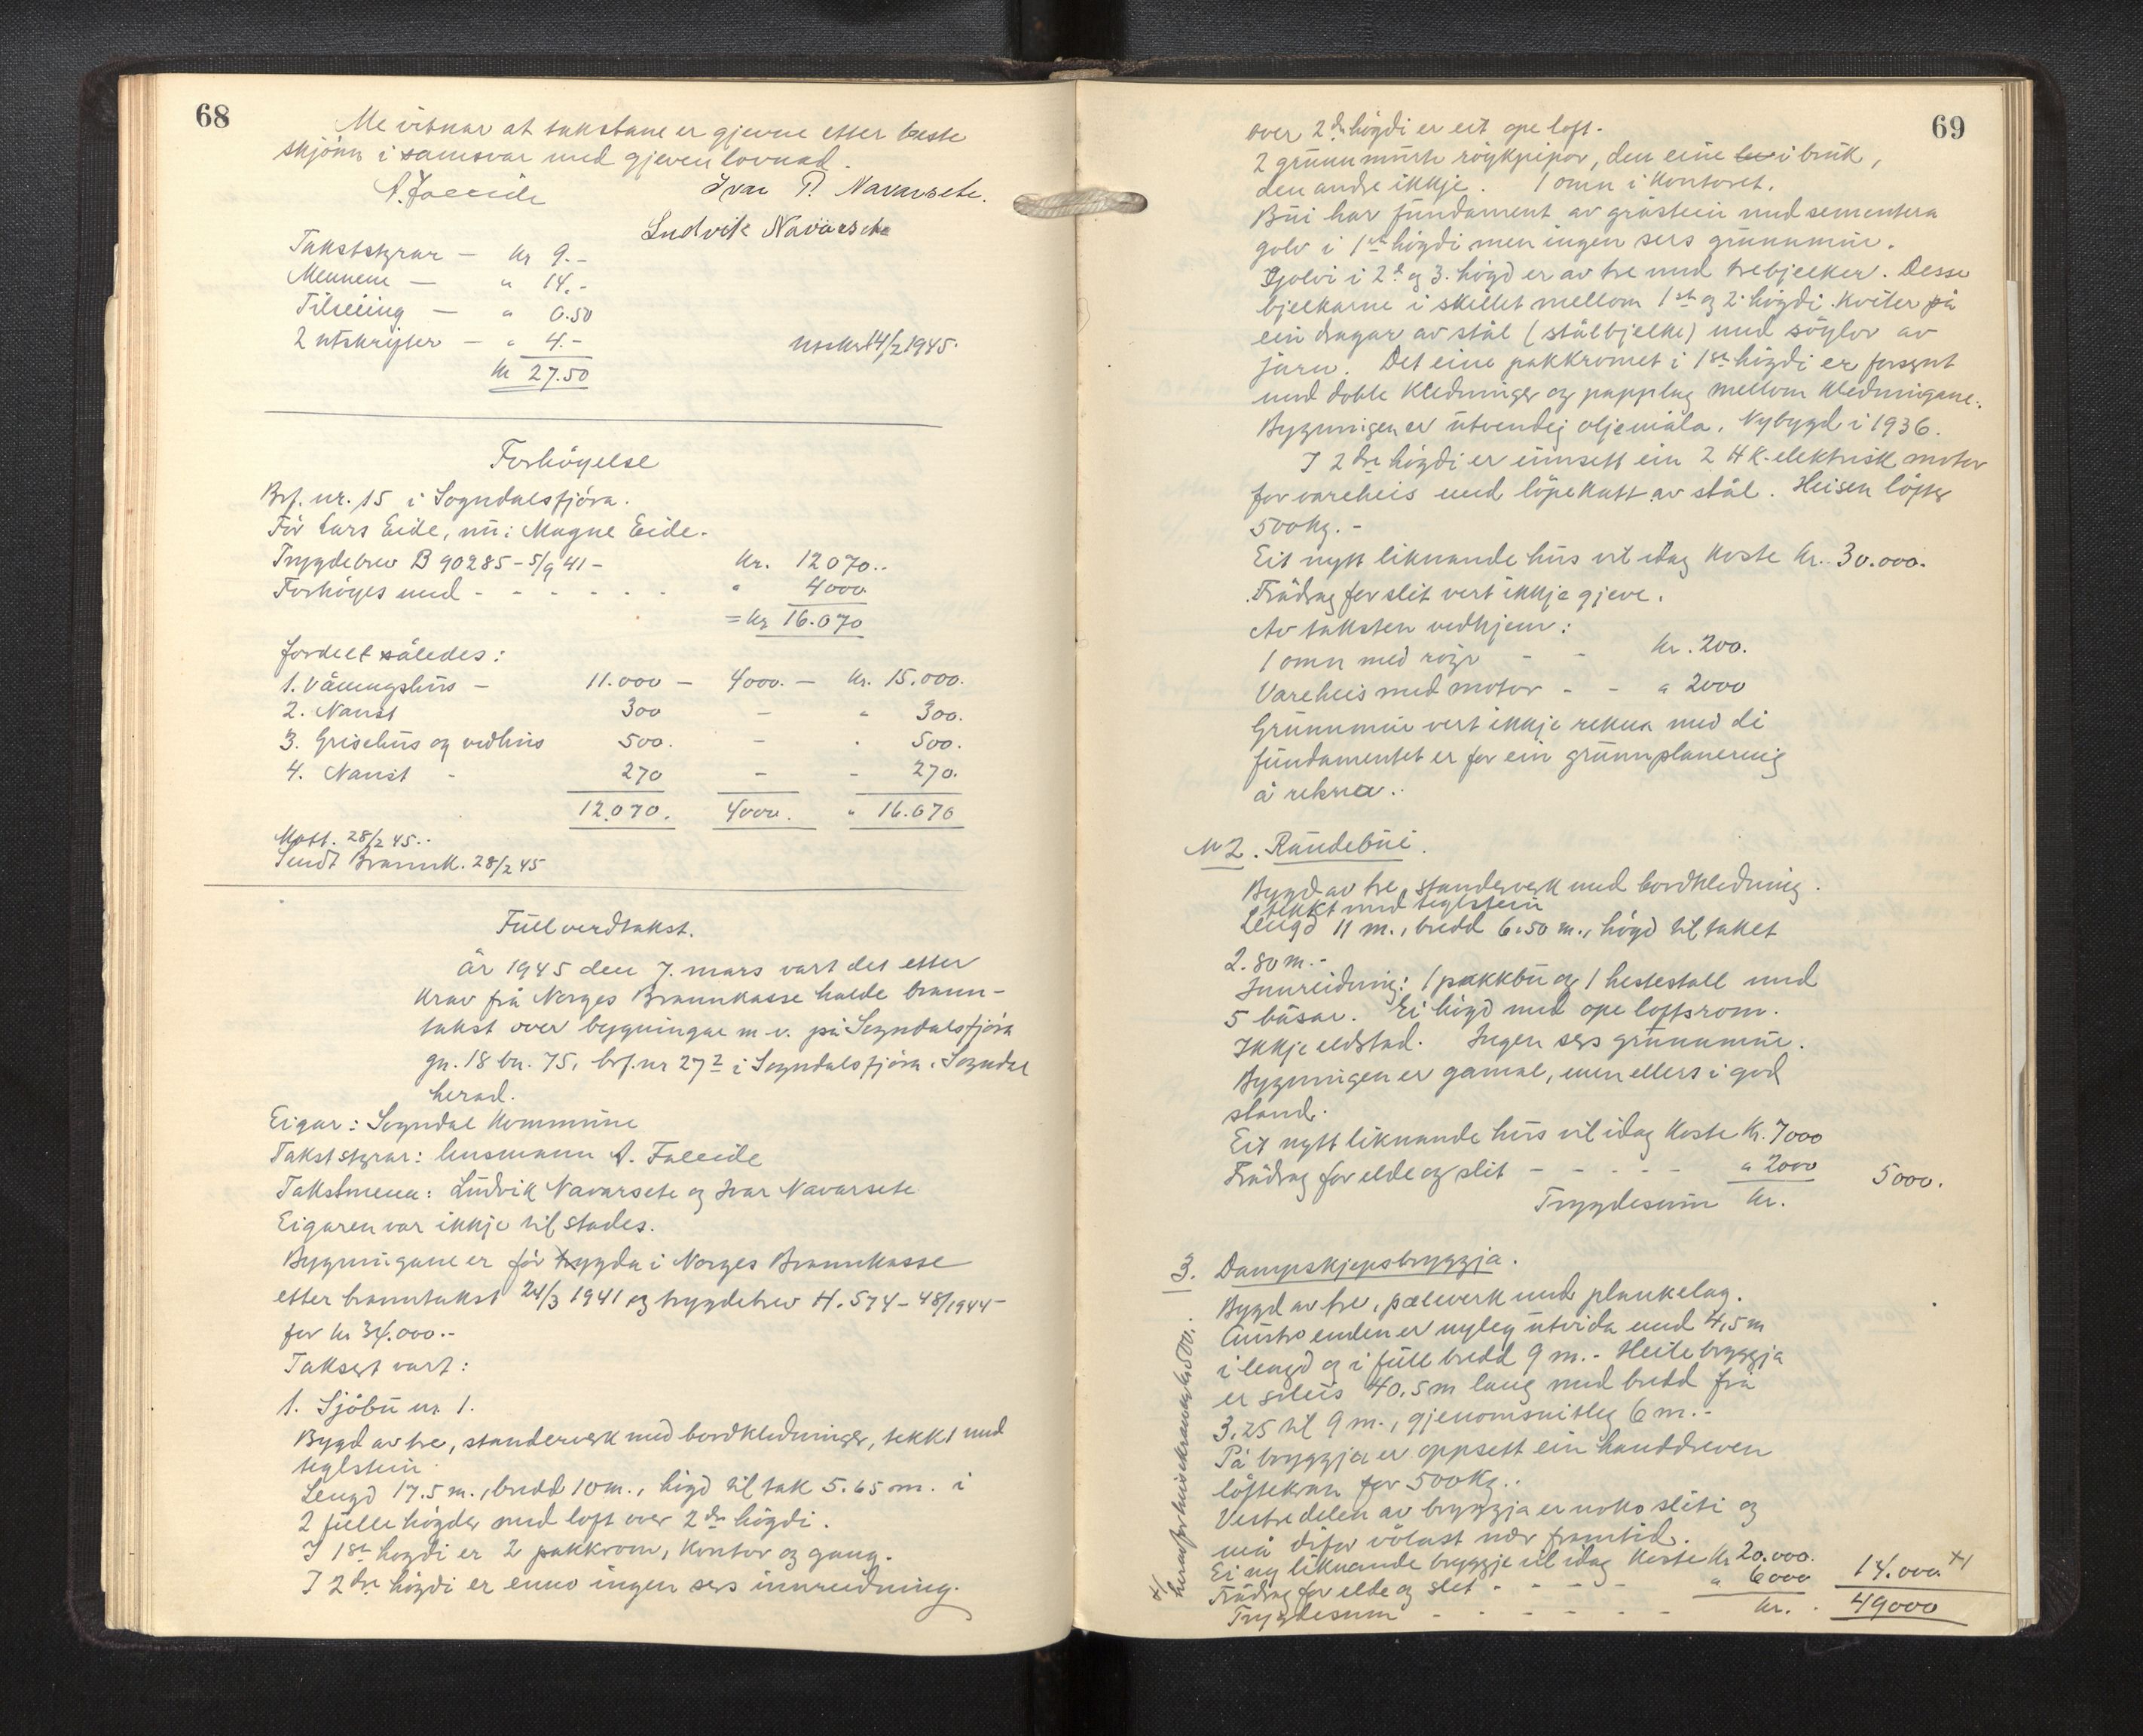 68
Me vitnar at takstane er gjevne etter beste
skjönn i samsvar med gjeven lovnad.
A. Falleide Ivar P. Navarsete.
Ludvik Navarsete
Takststyrar — kr 9.-
Mennene — " 14.-
Tilseiing — " 0.50
2 utskrifter — " 4.-
kr 27.50
utskr. 14/2 1945.
Forhöyelse
Brf. nr. 15 i Sogndalsfjöra.
För Lars Eide, nu: Magne Eide.
Trygdebrev B 90285 - 5/9 41 - kr. 12070..
Forhöyes med - - - - - - " 4000
= kr 16.070
fordelt således:
1. Våningshus — 11.000 — 4000. — kr. 15.000.
2. Naust 300 — " 300.
3. Grisehus og vedhus 500. — . 500.
4. Naust - 270 — - 270.
12.070. 4000. " 16.070
Mott. 28/2 45..
Sendt Brannk. 28/2 45
Fullverdtakst.
År 1945 den 7. mars vart det etter
krav frå Norges Brannkasse halde brann-
takst over bygningar m.v. på Sogndalsfjöra
gn. 18 bn. 75, brf. nr 27² i Sogndalsfjöra, Sogndal
herad.
Eigar: Sogndal Kommune
Takststyrar: lensmann A. Falleide
Takstmenn: Ludvik Navarsete og Ivar Navarsete
Eigaren var ikkje til stades.
Bygningane er för trygda i Norges Brannkasse
etter branntakst 24/3 1941 og trygdebrev H. 574 - 48/1944 -
for kr 34.000.-
Taksert vart:
1. Sjöbu nr 1.
Bygd av tre, standerverk med bordkledninger, tekkt med
teglstein.
Lengd 17.5 m., bredd 10 m., högd til tak 5.65 m. i
2 fulle högder med loft over 2dre högdi.
I 1ste hogdi er 2 pakkrom, kontor og gang.
I 2dre högdi er enno ingen sers innreidning.
69
over 2dre högdi er eit ope loft.
2 grunnmurte röykpipor, den eine i bruk,
den andre ikkje. 1 omn i kontoret.
Bui har fundament av gråstein med sementera
golv i 1ste högdi men ingen sers grunnmur.
Golvi i 2dre og 3. högd er av tre med trebjelker. Desse
bjelkane i skillet mellom 1ste og 2. högdi kviler på
ein dragar av stål (stålbjelke) med söylor av
jarn. Det eine pakkromet i 1ste högdi er forsynt
med doble kledninger og papplag mellom kledningane.
Bygningen er utvendig oljemåla. Nybygd i 1936.
I 2dre högdi er innsett ein 2 HK. elektrisk motor
for vareheis med löpekatt av stål. Heisen löfter
500 kg. -
Eit nytt liknande hus vil idag koste kr. 30.000.
Frådrag for slit vert ikkje gjeve.
Av taksten vedkjem:
1 omn med röyr - - kr. 200.
Vareheis med motor - - " 2000
Grunnmur vert ikkje rekna med di
fundamentet er for ein grunnplanering
å rekna..
N 2. Raudebui.
Bygd av tre, standerverk med bordkledning.
tekkt med teglstein
Lengd 11 m., bredd 6.50 m., högd til taket
2.80 m.-
Innreidning: 1 pakkbu og 1 hestestall med
5 båsar. Ei högd med ope loftsrom.
Ikkje eldstad. Ingen sers grunnmur.
Bygningen er gamal, men ellers i god
stand.
Eit nytt liknande hus vil idag koste kr. 7000
Frådrag for elde og slit - - - - - " 2000 5000.
Trygdesum kr.
3. Dampskipsbryggja.
Bygd av tre, pælverk med plankelag.
Austre enden er nyleg utvida med 4,5 m
i lengd og i full bredd 9 m.- Heile bryggja
er soleis 40,5 m lang med bredd frå
3,25 til 9 m., gjenomsnitleg 6 m.-
På bryggja er oppsett ein handdreven
löftekran for 500 kg..
Vestre delen av bryggja er noko sliti og
må difor völast nær framtid.
Ei ny liknande bryggje vil idag koste kr 20.000.
Frådrag for elde og slit - - - - - " 6000 14.000 x)
Trygdesum - - - - - - kr. 49000
x) herav for heisekranen kr. 500.